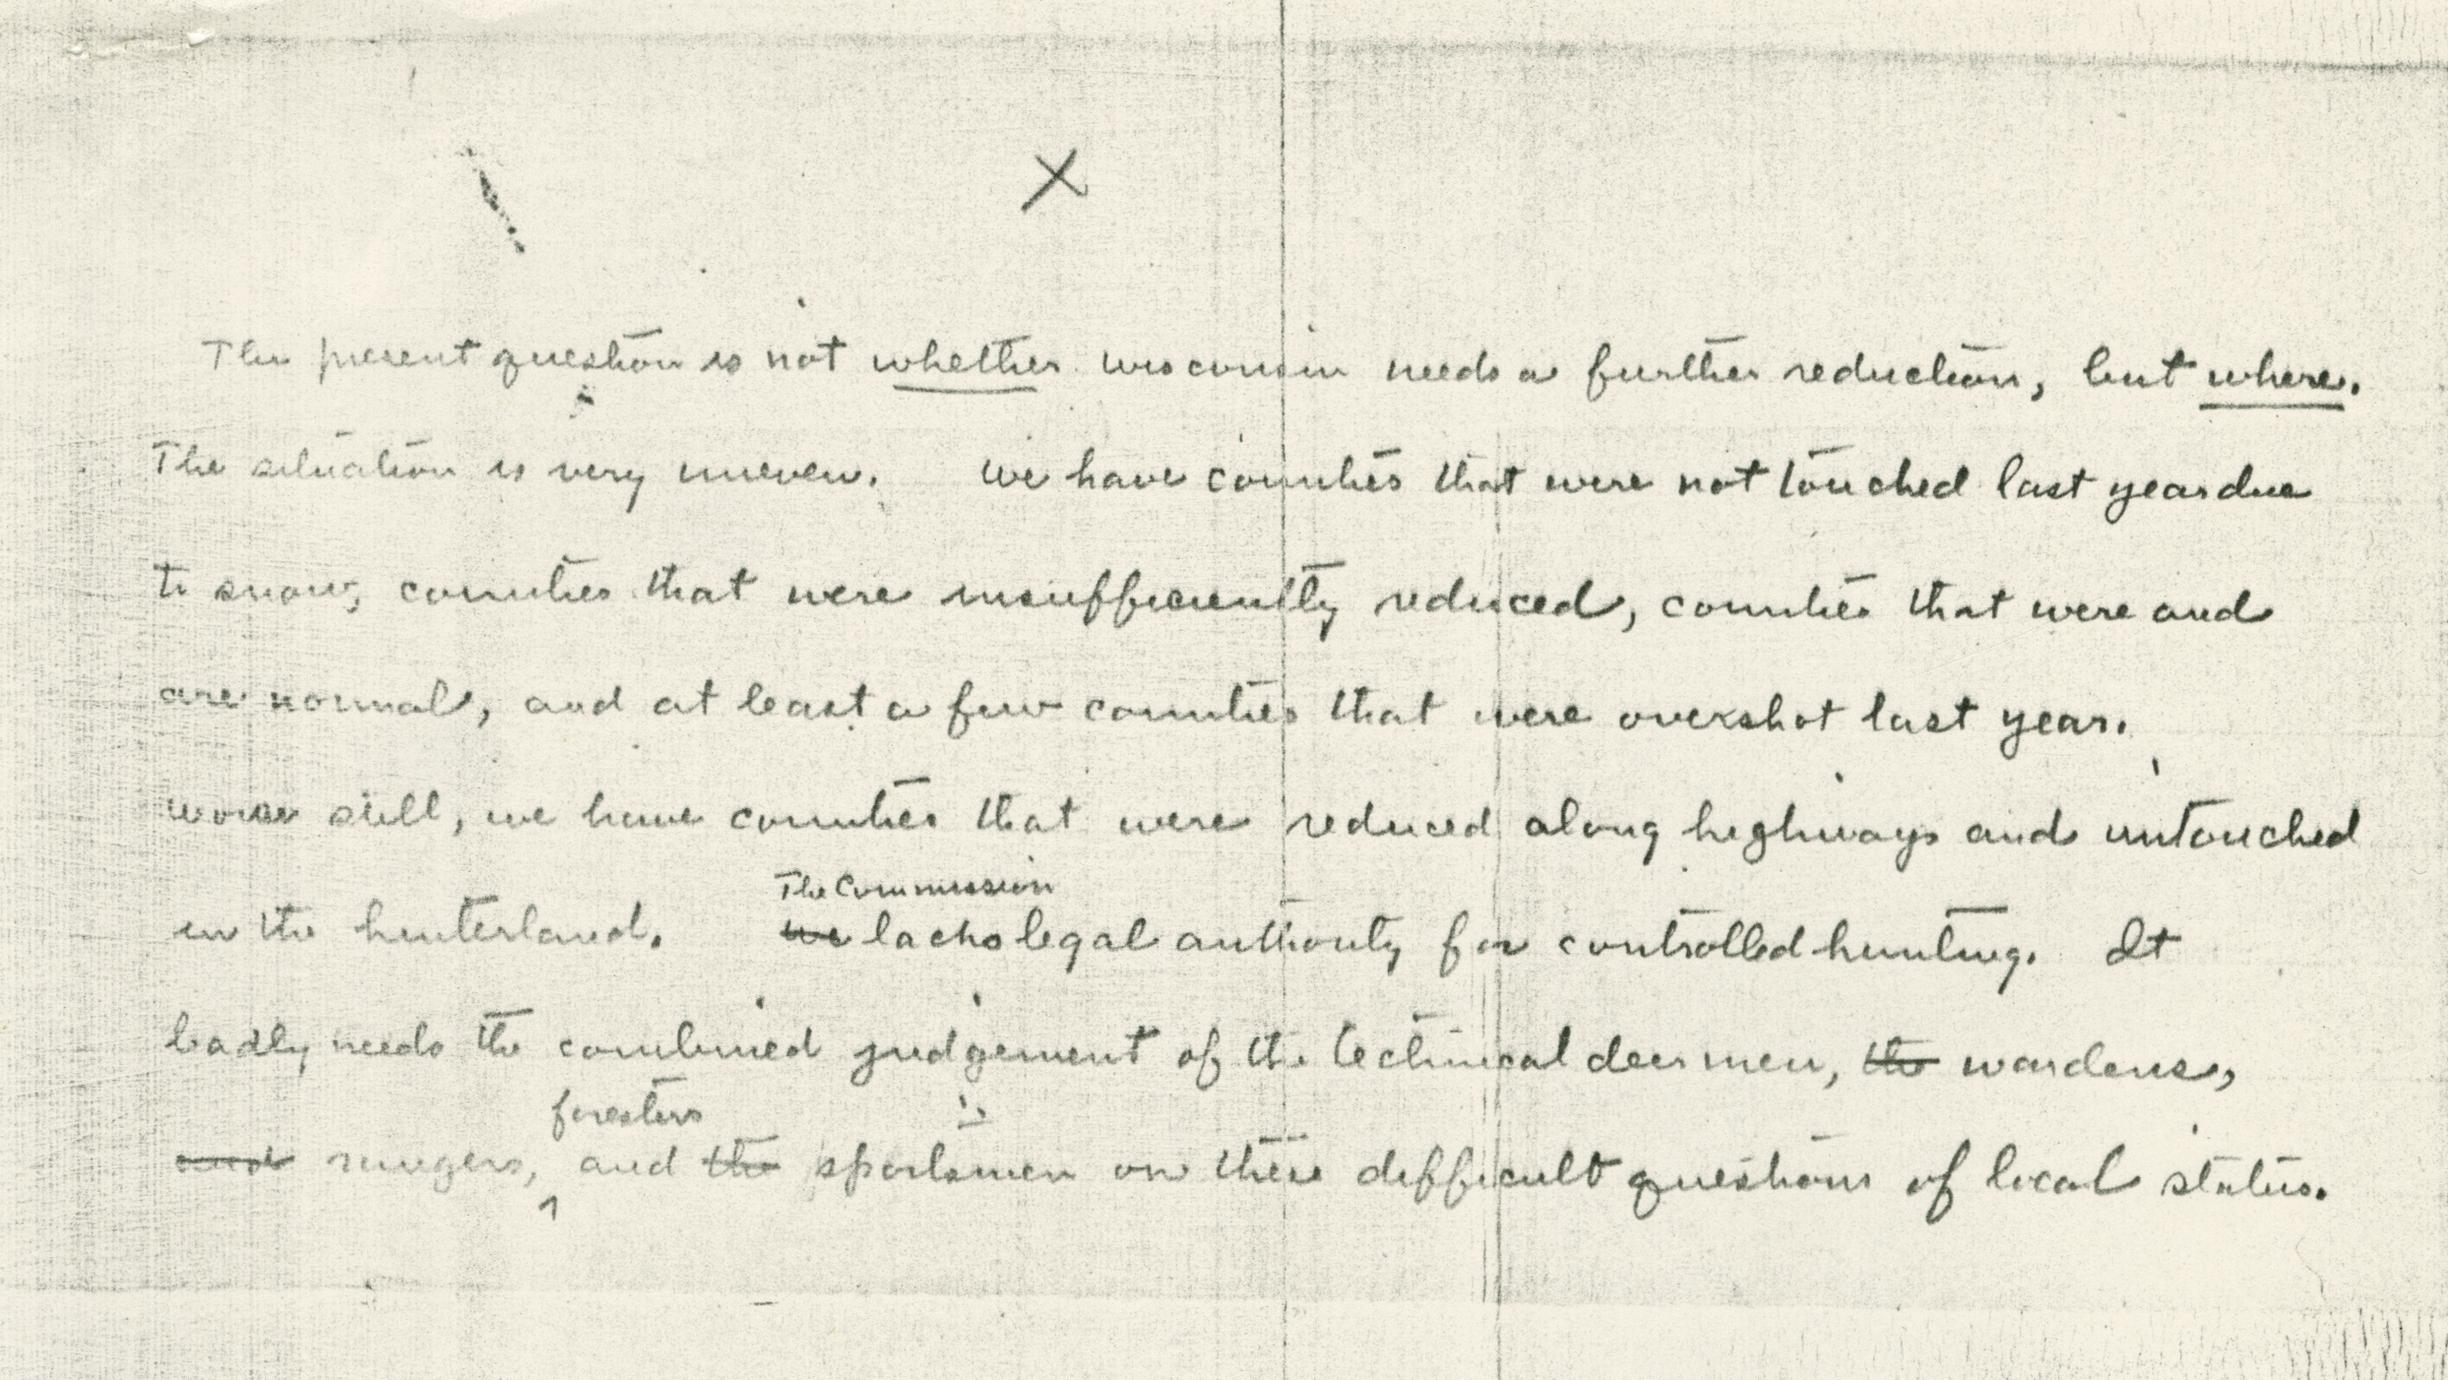 X
The present question is not whether Wisconsin needs a further reduction, but where.
The situation is very uneven. We have counties that were not touched last year due
to snow, counties that were insufficiently reduced, counties that were and
are normal, and at least a few counties that were overshot last year.
Worse still, we have counties that were reduced along highways and untouched
in the hinterland. ~~We~~ The Commission lacks legal authority for controlled hunting. It
badly needs the combined judgement of the technical deer men, ~~the~~ wardens,
~~and~~ rangers, foresters and ~~the~~ sportsmen on these difficult questions of local status.